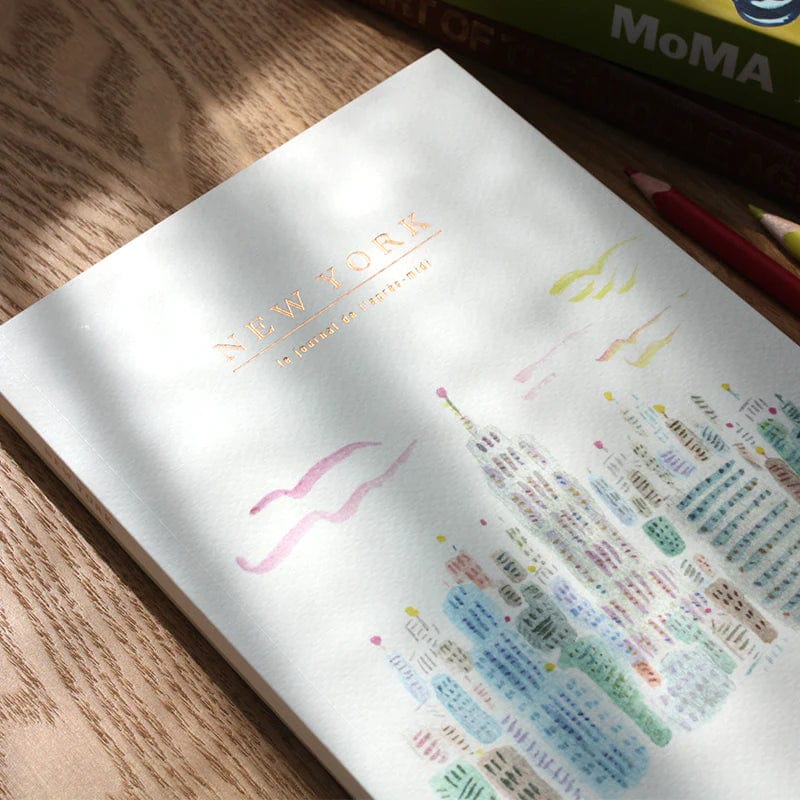 MoMA
ART OF THE
NEW YORK
le journal de l'après-midi